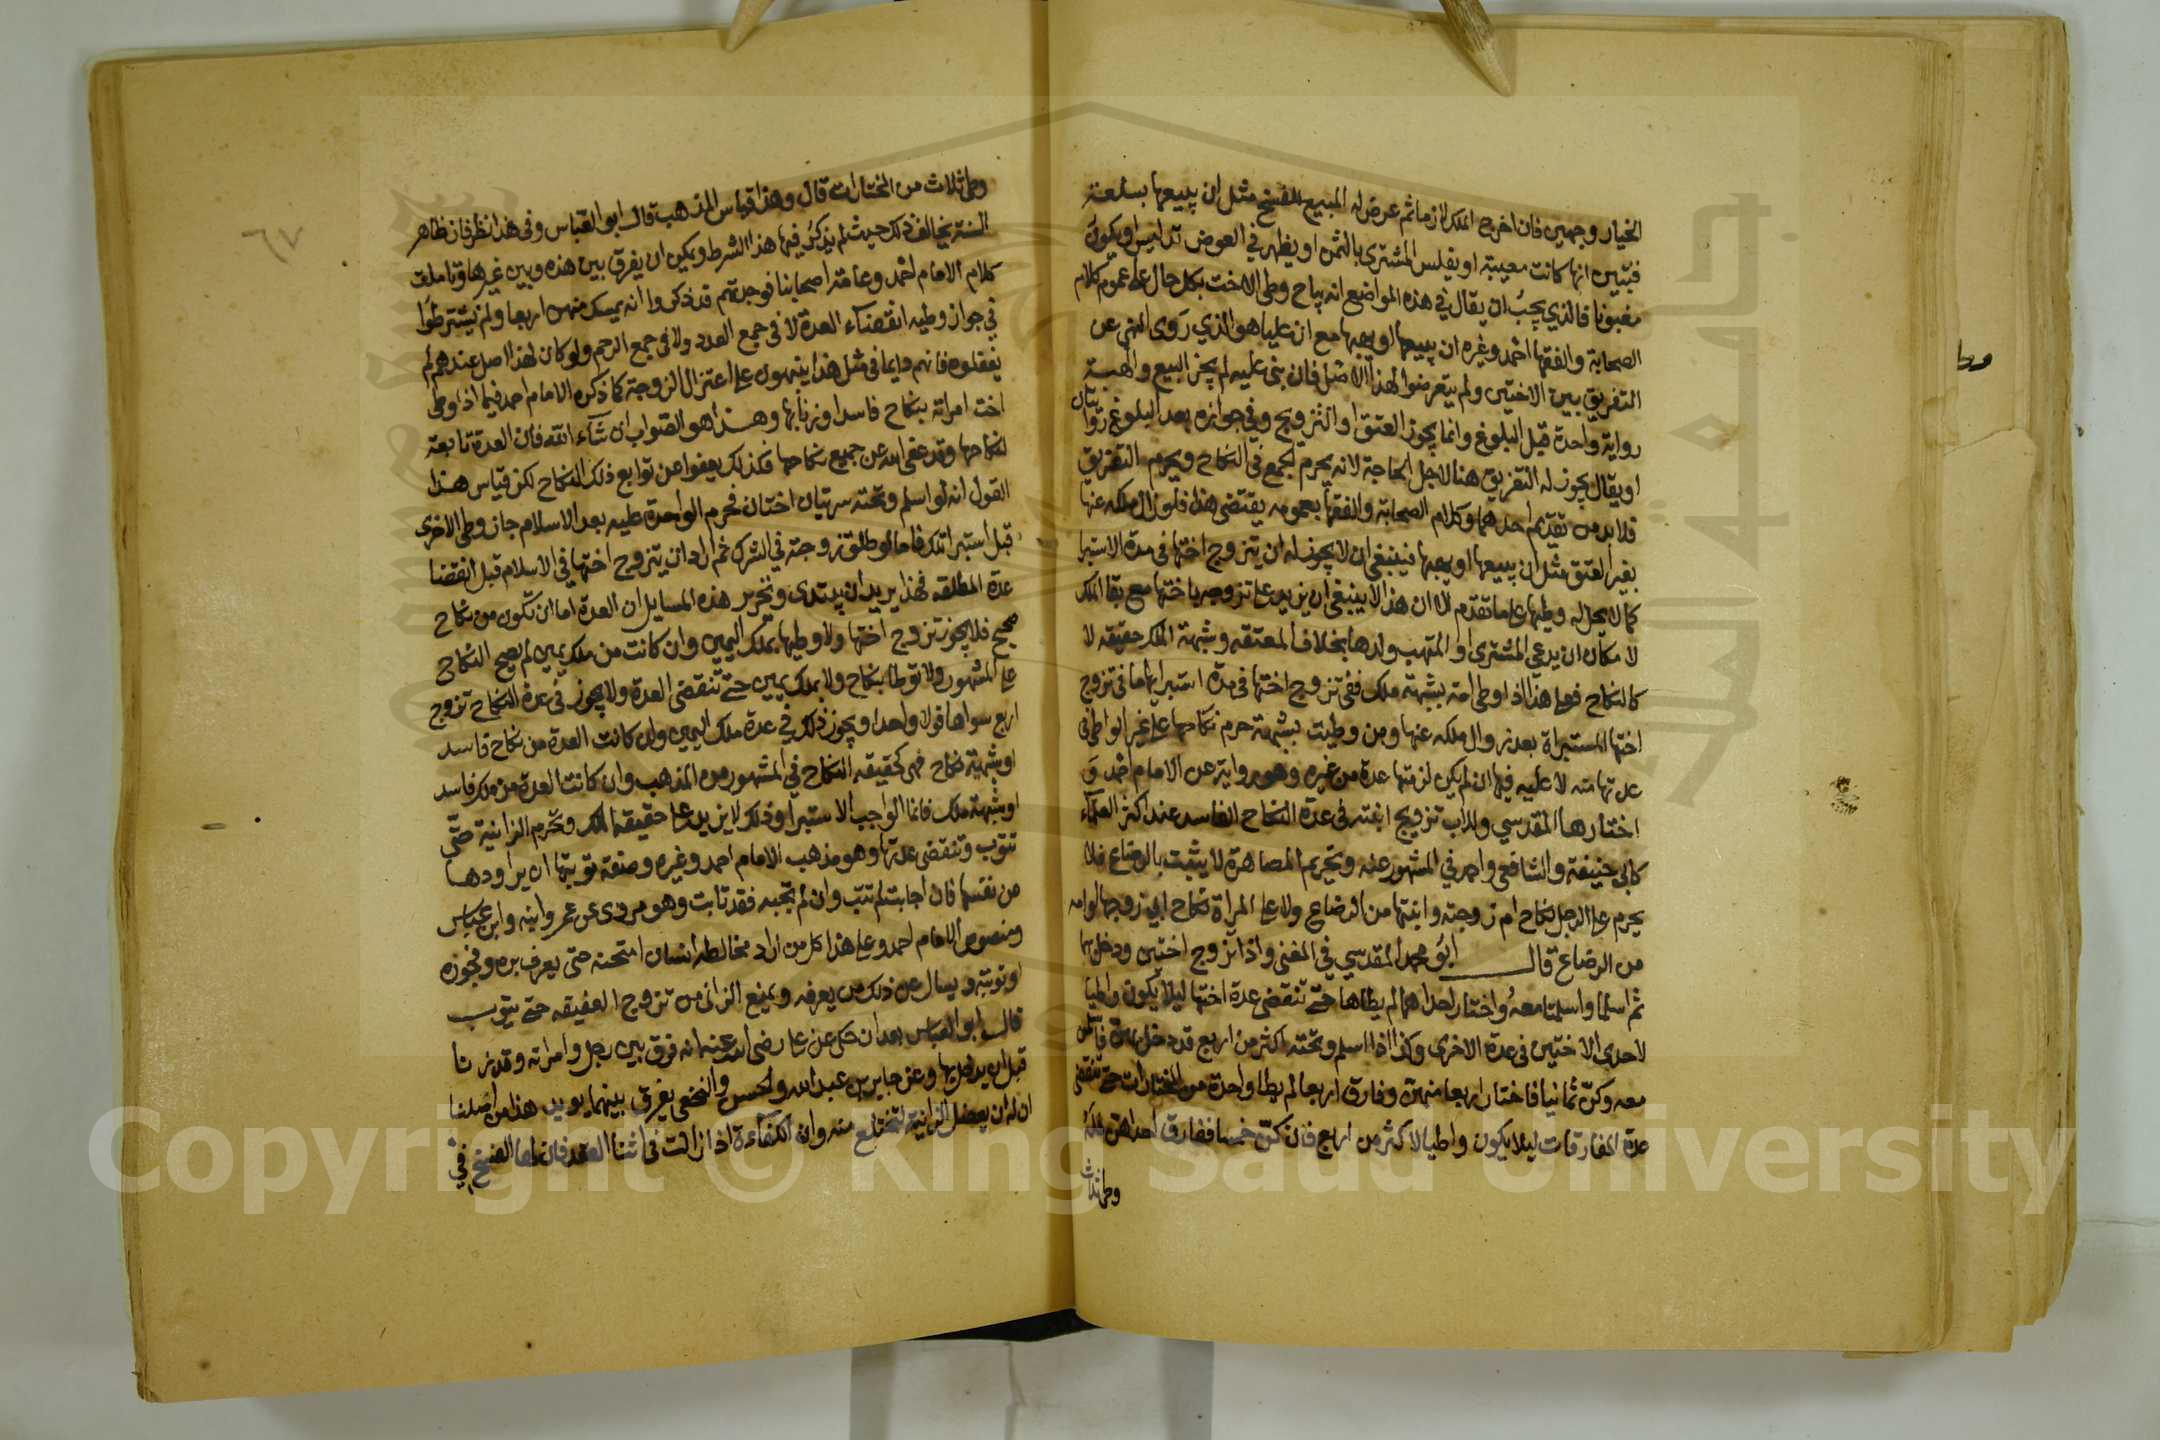 الخيار وجهين فان اخرج الملك لازما ثم عرض له المبيح للفسخ مثل ان يبيعها بسلعة
فتبين انها كانت معيبة او يفلس المشترى بالثمن او يظهر في العوض تدليس او يكون
مغبونا فالذي يجب ان يقال في هذه المواضع انه يباح وطي الاخت بكل حال على عموم كلام
الصحابة والفقها احمد وغيره ان يبيعها او يهبها مع ان عليا هو الذي روى النهي عن
التفريق بين الاختين ولم يتعرضوا لهذا الاصل فان بنى عليه لم يجز البيع والهبة
رواية واحدة قبل البلوغ وانما يجوز العتق او التزويج وفي جوازه بعد البلوغ روايتان
او يقال يجوز له التفريق هنا لاجل الحاجة لانه يحرم الجمع في النكاح ويحرم التفريق
فلا بد من تقديم احدهما وكلام الصحابة والفقها بعمومه يقتضى هذا فلو زال ملكه عنها
بغير العتق مثل ان يبيعها او يهبها فينبغي ان لا يجوز له ان يتزوج اختها في مدة الاستبرا
كما لا يحل له وطيها على ما تقدم الا ان هذا لا ينبغي ان يزيد على تزوجه باختها مع بقا الملك
لامكان ان يدعي المشترى او المتهب ولدها بخلاف المعتقه وشبهة الملك حقيقه لا
كالنكاح فعلى هذا اذا وطى امة بشبهة ملك ففي تزوج اختها في مدة استبرايها ما في تزوج
اختها المستبراة بعد زوال ملكه عنها ومن وطيت بشبهة حرم نكاحها على غير الواطي في
عدتها منه لا عليه فيها ان لم يكن لزمتها عدة من غيره وهو رواية عن الامام احمد و
اختارها المقدسي وللاب تزويج ابنته في عدة النكاح الفاسد عند اكثر العلماء
كابي حنيفة والشافعي واحمد في المشهور عنه وتحريم المصاهرة لا يثبت بالرضاع فلا
يحرم على الرجل نكاح ام زوجته وابنتها من الرضاع ولا على المراة نكاح ابي زوجها وابنه
من الرضاع قال ابو محمد المقدسي في المغنى واذا تزوج اختين ودخل بهما
ثم اسلم واسلمتا معه واختار احداهما لم يطاها حتى تنقضى عدة اختها ليلا يكون واطيا
لاحدى الاختين في عدة الاخرى وكذا اذا اسلم وتحته اكثر من اربع قد دخل بهن فاسلمن
معه وكن ثمانيا فاختار اربعا منهن وفارق اربعا لم يطا واحدة من المختارات حتى تنقضي
عدة المفارقات ليلا يكون واطيا لاكثر من اربع فان كن خمسا ففارق احداهن فله
وطي ثلاث
٦٧
وطي ثلاث من المختارات قال وهذا قياس المذهب قال ابو العباس وفي هذا نظر فان ظاهر
السنة يخالف ذلك حيث لم يذكر فيها هذا الشرط ويمكن ان يفرق بين هذه وبين غيرها وتاملت
كلام الامام احمد وعامة اصحابنا فوجدتهم قد ذكروا انه يمسك منهن اربعا ولم يشترطوا
في جواز وطيه انقضاء العدة لا في جمع العدد ولا في جمع الرحم ولو كان لهذا اصل عندهم لم
يغفلوه فانهم دايما في مثل هذا ينبهون على اعتزال الزوجة كما ذكره الامام احمد فيما اذا وطى
اخت امراته بنكاح فاسد او زنا بها وهذا هو الصواب ان شاء الله فان العدة تابعة
لنكاحها وقد عفى الله عن جميع نكاحها فكذلك يعفوا عن توابع ذلك النكاح لكن قياس هذا
القول انه لو اسلم وتحته سريتان اختان فحرم الواحدة عليه بعد الاسلام جاز وطي الاخرى
قبل استبرا تلك فاما لو طلق زوجته في الشرك ثم اراد ان يتزوج اختها في الاسلام قبل انقضا
عدة المطلقه فهذا يريد ان يبتدي وتحرير هذه المسايل ان العدة اما ان تكون من نكاح
صحيح فلا يجوز تزوج اختها ولا وطيها بملك اليمين وان كانت من ملك يمين لم يصح النكاح
على المشهور ولا توطا بنكاح ولا بملك يمين حتى تنقضى العدة ولا يجوز في عدة النكاح تزوج
اربع سواها قولا واحدا ويجوز ذلك في عدة ملك اليمين وان كانت العدة من نكاح فاسد
او شبهة نكاح فهي كحقيقه النكاح في المشهور من المذهب وان كانت العدة من ملك فاسد
او شبهة ملك فانما الواجب الاستبرا وذلك لا يزيد على حقيقه الملك وتحرم الزانية حتى
تتوب وتنقضى عدتها وهو مذهب الامام احمد وغيره وصفة توبتها ان يراودها
من نفسها فان اجابت لم تتب وان لم تجبه فقد تابت وهو مروى عن عمر وابنه وابن عباس
ومنصوص الامام احمد وعلى هذا كل من اراد مخالطه انسان امتحنه حتى يعرف بره وفجوره
او توبته ويسال عن ذلك من يعرفه ويمنع الزانى من تزوج العفيفه حتى يتوب
قال ابو العباس بعد ان حكى عن علي رضى الله عنه انه فرق بين رجل وامراته وقد زنا
قبل ان يدخل بها وعن جابر بن عبد الله والحسن والنخعي يفرق بينهما يويد هذا من اصلنا
ان له ان يعضل الزانية لتختلع منه وان الكفاءة اذا زالت في اثنا العقد فان لها الفسخ في
Copyright © King Saud University